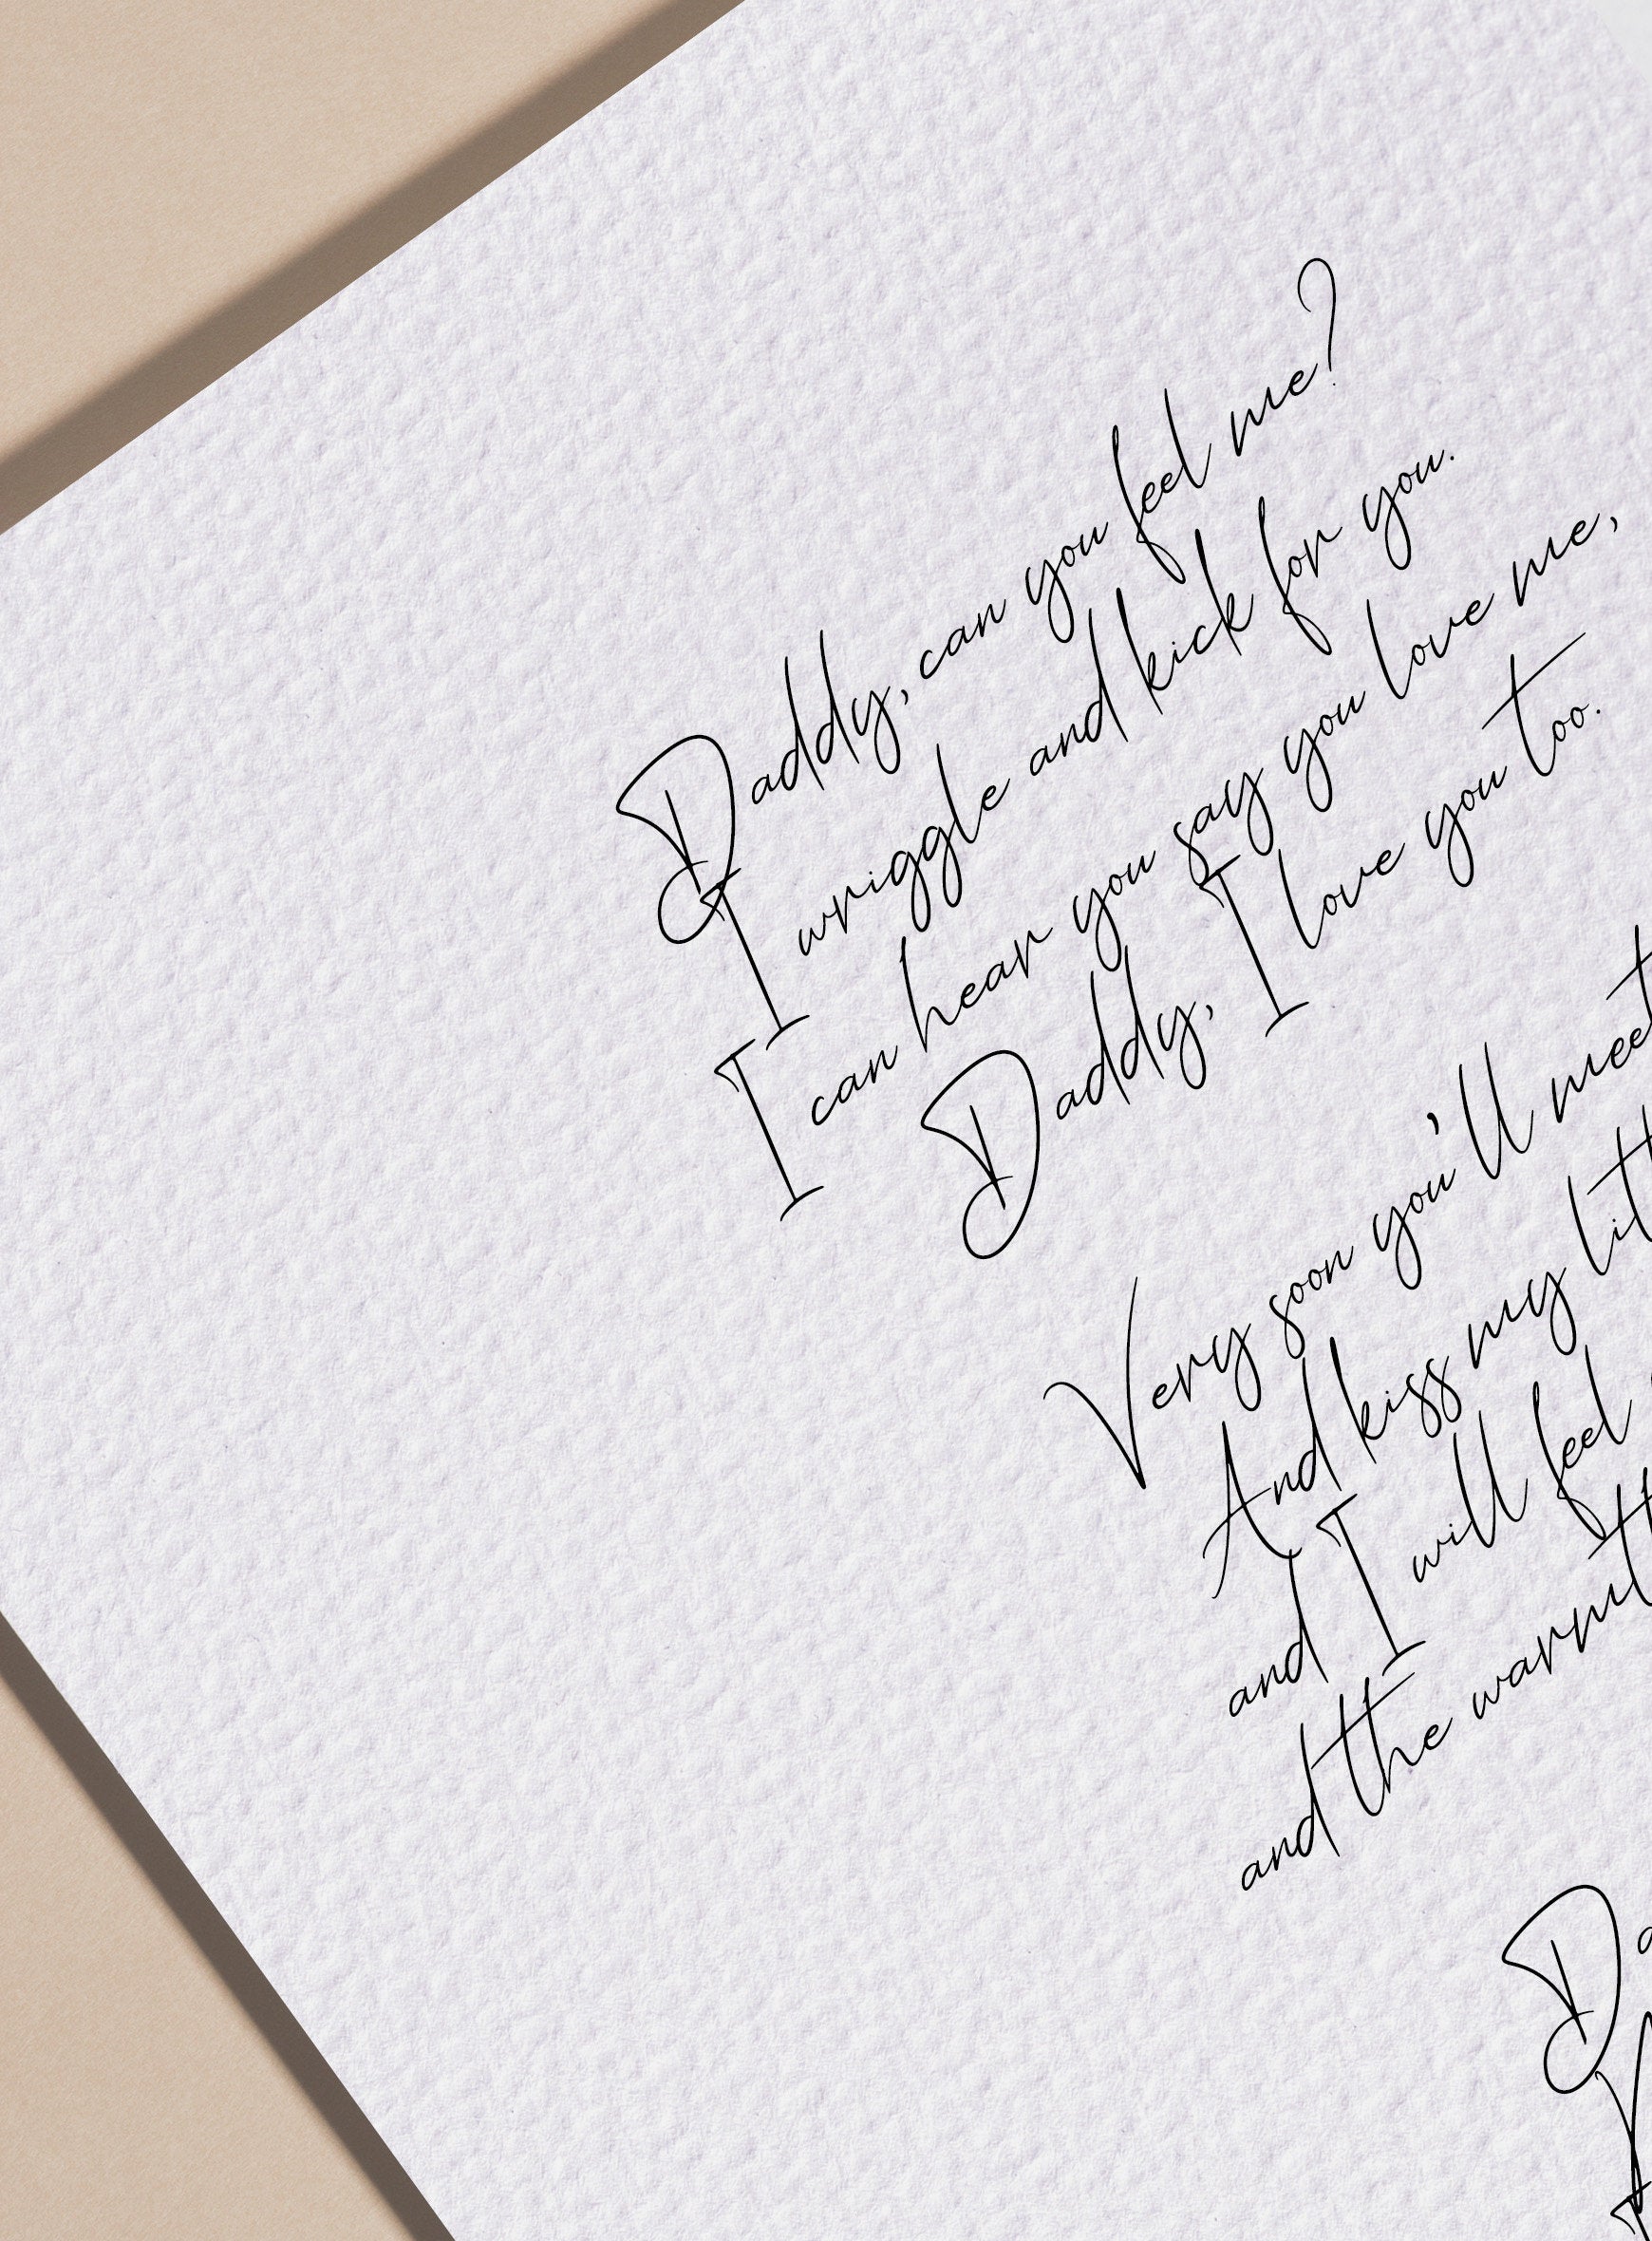 Daddy, can you feel me?
I wriggle and kick for you.
I can hear you say you love me,
Daddy, I love you too.
Very soon you'll meet
And kiss my
and I will feel
and the